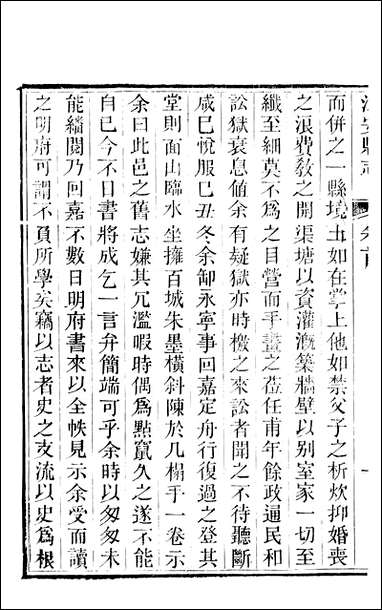 而併之一縣境土如在掌上他如禁父子之析炊抑婚喪
之浪費敎之開渠塘以資灌漑築牆壁以别室家一切至
纖至細莫不爲之目營而手畫之莅任甫年餘政通民和
訟獄衰息値余有疑獄亦時檄之來訟者聞之不待聽斷
咸已悅服已丑冬余卸永寧事回嘉定舟行復過之登其
堂則面山臨水坐擁百城朱墨橫斜陳於几榻手一卷示
余曰此邑之舊志嫌其冗濫暇時偶爲點竄久之遂不能
自已今不日書將成乞一言弁簡端可乎余時以匆匆未
能繙閱乃回嘉不數日明府書來以全帙見示余受而讀
之明府可謂不負所學矣竊以志者史之支流以史爲根